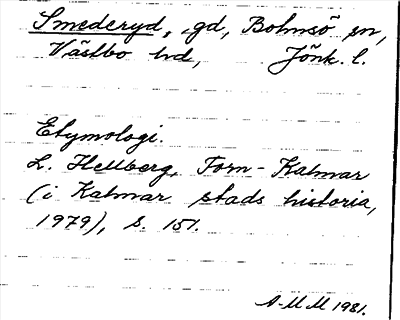 Smederyd, gd, Bolmsö sn,
Västbo hd, Jönk. l.
Etymologi.
L. Hellberg, Forn-Kalmar
(i Kalmar stads historia,
1979), s. 151.
A-M M 1981.